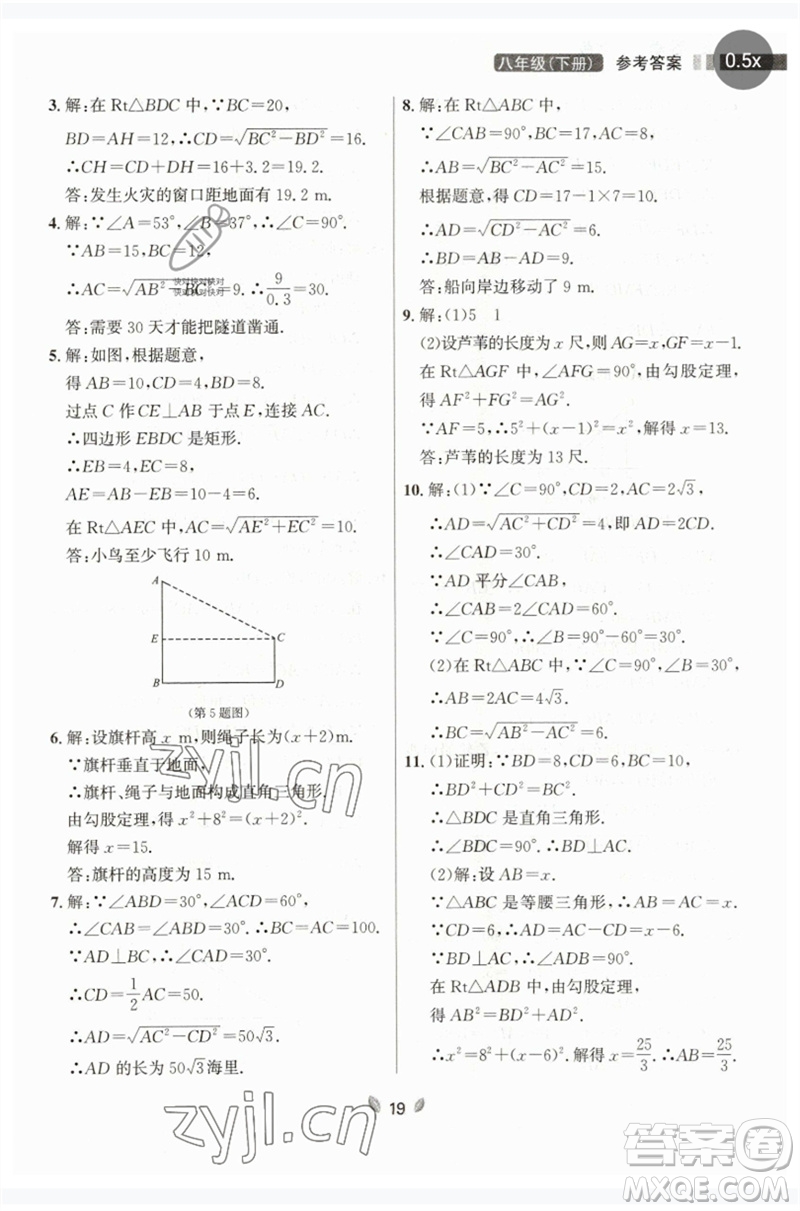 八年级(下册) 参考答案 0.5x
3. 解:在 Rt△BDC 中,∵BC=20,
BD=AH=12,∴CD=√(BC²-BD²)=16.
∴CH=CD+DH=16+3.2=19.2.
答:发生火灾的窗口距地面有 19.2 m.
4. 解:∵∠A=53°,∠B=37°,∴∠C=90°.
∵AB=15,BC=12,
∴AC=√(AB²-BC²)=9.∴9/0.3=30.
快对快对快对
快对快对快对
答:需要 30 天才能把隧道凿通.
5. 解:如图,根据题意,
得 AB=10,CD=4,BD=8.
过点 C 作 CE⊥AB 于点 E,连接 AC.
∴四边形 EBDC 是矩形.
∴EB=4,EC=8.
AE=AB-EB=10-4=6.
在 Rt△AEC 中,AC=√(AE²+EC²)=10.
答:小鸟至少飞行 10 m.
A
E C
B D
(第 5 题图)
6. 解:设旗杆高 x m,则绳子长为(x+2)m.
∵旗杆垂直于地面,
∴旗杆、绳子与地面构成直角三角形.
由勾股定理,得 x²+8²=(x+2)².
解得 x=15.
答:旗杆的高度为 15 m.
zyjl.cn
7. 解:∵∠ABD=30°,∠ACD=60°,
∴∠CAB=∠ABD=30°.∴BC=AC=100.
∵AD⊥BC,∴∠CAD=30°.
∴CD=1/2AC=50.
∴AD=√(AC²-CD²)=50√3.
∴AD 的长为 50√3海里.
zyjl.cn
8. 解:在 Rt△ABC 中,
∵∠CAB=90°,BC=17,AC=8,
∴AB=√(BC²-AC²)=15.
根据题意,得 CD=17-1×7=10.
∴AD=√(CD²-AC²)=6.
∴BD=AB-AD=9.
答:船向岸边移动了 9 m.
9. 解:(1)5 1
(2)设芦苇的长度为 x 尺,则 AG=x,GF=x-1.
在 Rt△AGF 中,∠AFG=90°,由勾股定理,
得 AF²+FG²=AG².
∵AF=5,∴5²+(x-1)²=x².解得 x=13.
答:芦苇的长度为 13 尺.
10. 解:(1)∵∠C=90°,CD=2,AC=2√3,
∴AD=√(AC²+CD²)=4,即 AD=2CD.
∴∠CAD=30°.
∵AD 平分∠CAB,
∴∠CAB=2∠CAD=60°.
∵∠C=90°,∴∠B=90°-60°=30°.
(2)在 Rt△ABC 中,∵∠B=30°,
∴AB=2AC=4√3.
∴BC=√(AB²-AC²)=6.
11. (1)证明:∵BD=8,CD=6,BC=10,
∴BD²+CD²=BC².
∴△BDC 是直角三角形.
∴∠BDC=90°.∴BD⊥AC.
(2)解:设 AB=x.
∵△ABC 是等腰三角形,∴AB=AC=x.
∵CD=6,∴AD=AC-CD=x-6.
∵BD⊥AC,∴∠ADB=90°.
在 Rt△ADB 中,由勾股定理,
得 AB²=BD²+AD².
∴x²=8²+(x-6)².解得 x=25/3.∴AB=25/3.
19
答案卷
MXQE.COM